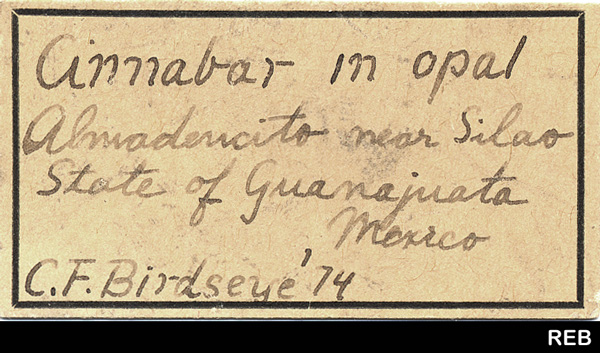 Cinnabar in opal
Almadencito near Silao
State of Guanajuata
Mexico
C.F. Birdseye '74
REB